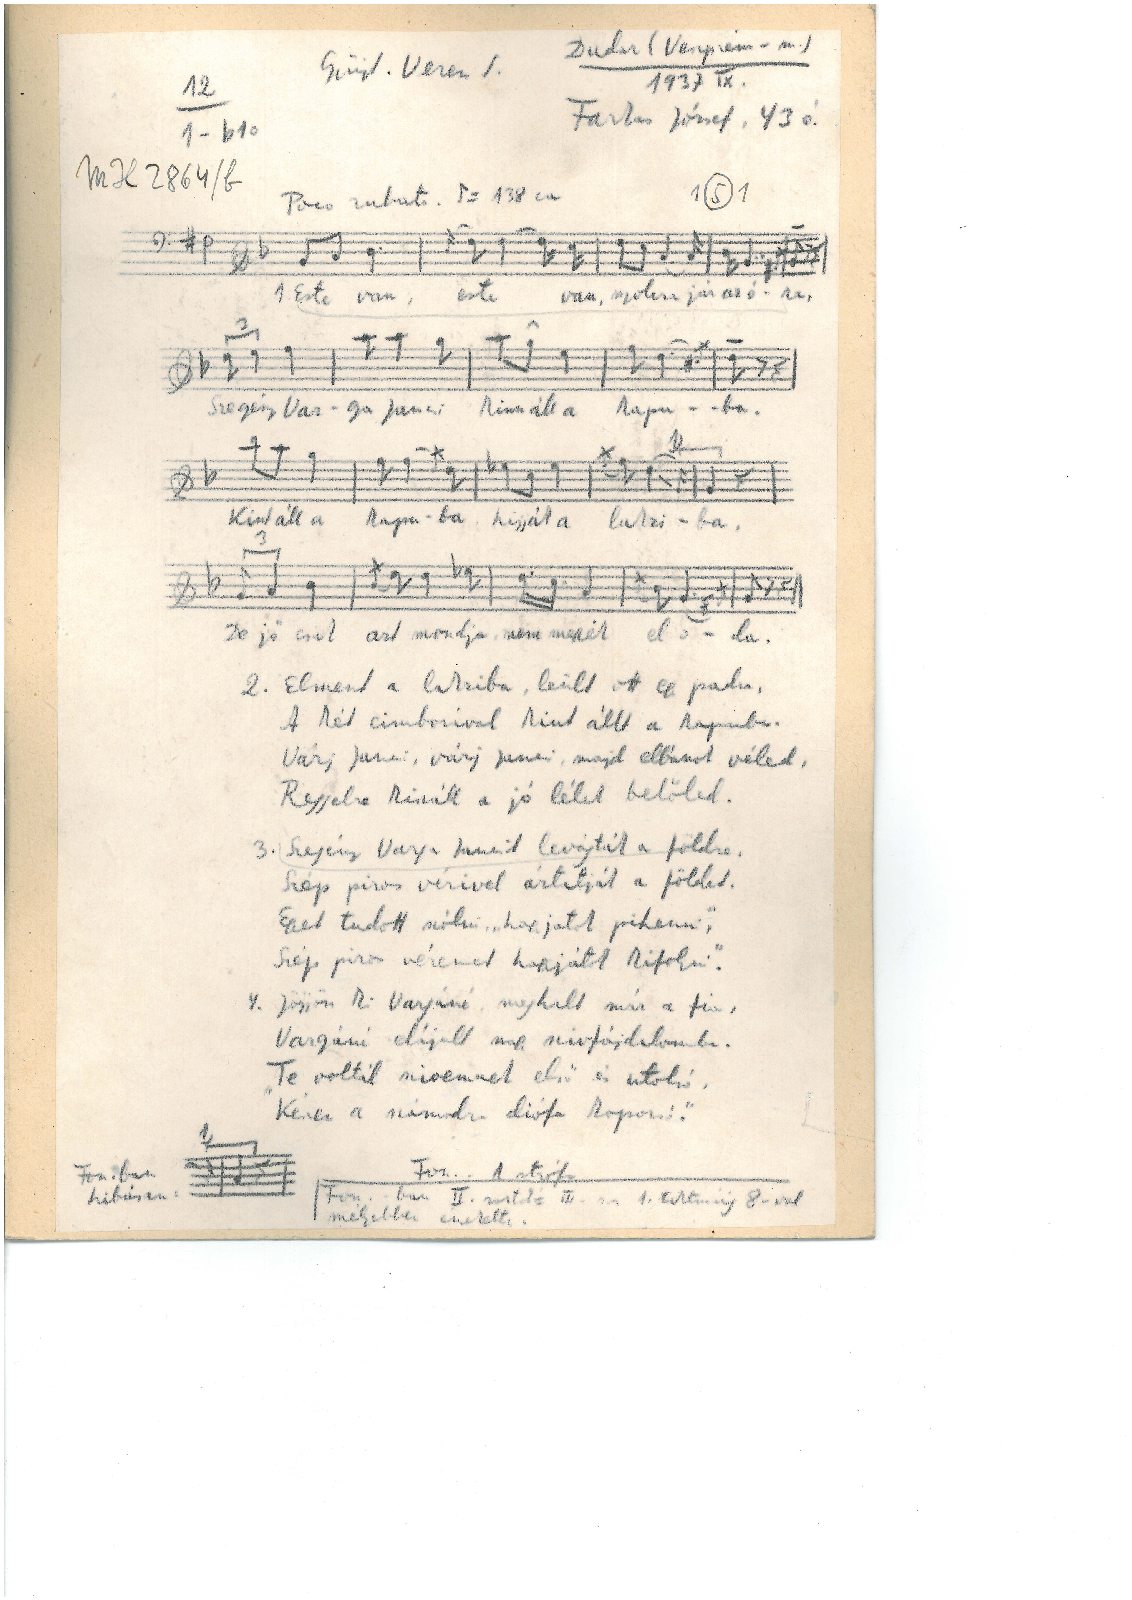 Gyűjt. Veress S.
Dudar (Veszprém-m.)
1937 IX.
Farkas József, 43 é.
12
1-b10
MH 2864/b
Poco rubato. = 138 ca
1 (5) 1
1. Este van, este van, nyolcra jár az ó-ra,
3
Szegény Var-ga Jancsi kinn áll a kapu--ba.
Kint áll a kapu-ba, hijják a lutri-ba,
3
De jó csak azt mondja, nem mehet el o-da.
2. Elment a lutriba, leült ott egy padra,
A két cimborával kint állt a kapuba.
Várj Jancsi, várj Jancsi, majd elbánok véled,
Reggelre kiszáll a jó lélek belőled.
3. Szegény Varga Jancsit levágták a földre,
Szép piros vérivel áztatják a földet.
Egyet tudott szólni: „hagyjatok pihenni,"
Szép piros véremet hagyjátok kifolyni".
4. Jöjjön ki Vargáné, meghalt már a fia,
Vargáné elájult nagy szívfájdalomba.
„Te voltál szivemnek első és utolsó,
Készen a számodra diófa koporsó."
Fon.-ban
hibásan:
Fon.. 1 strófa
Fon.-ban II. III. 1. 8-val
mélyebben